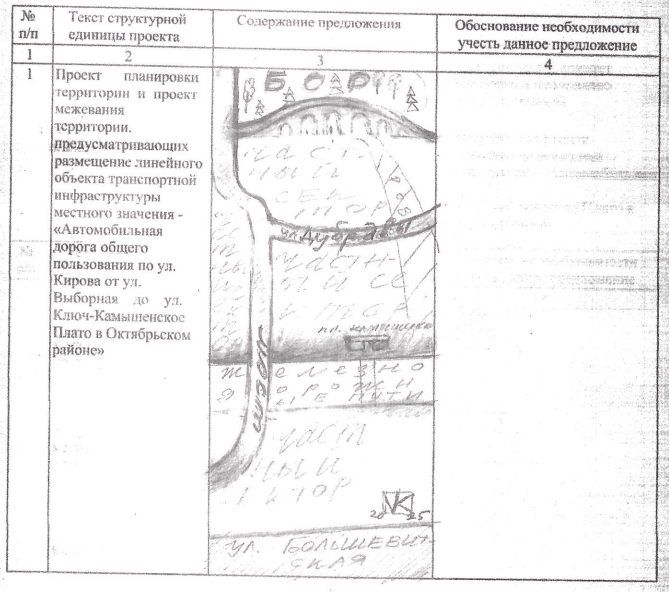 №
п/п
Текст структурной
единицы проекта
Содержание предложения
Обоснование необходимости
учесть данное предложение
1
2
3
4
1
Проект планировки
территории и проект
межевания
территории.
предусматривающих
размещение линейного
объекта транспортной
инфраструктуры
местного значения -
«Автомобильная
дорога общего
пользования по ул.
Кирова от ул.
Выборная до ул.
Ключ-Камышенское
Плато в Октябрьском
районе»
БОР
ЧАСТ
НЫЙ
СЕК
ТОР
ул. Дубравы
ЧАСТН
ЫЙ СЕ
КТОР
пл. камышенс
ЖЕЛЕЗНО
ДОРОЖН
ЫЕ ПУТИ
ЧАСТ
НЫЙ
КТОР
20 25
УЛ. БОЛЬШЕВИТ
СКАЯ